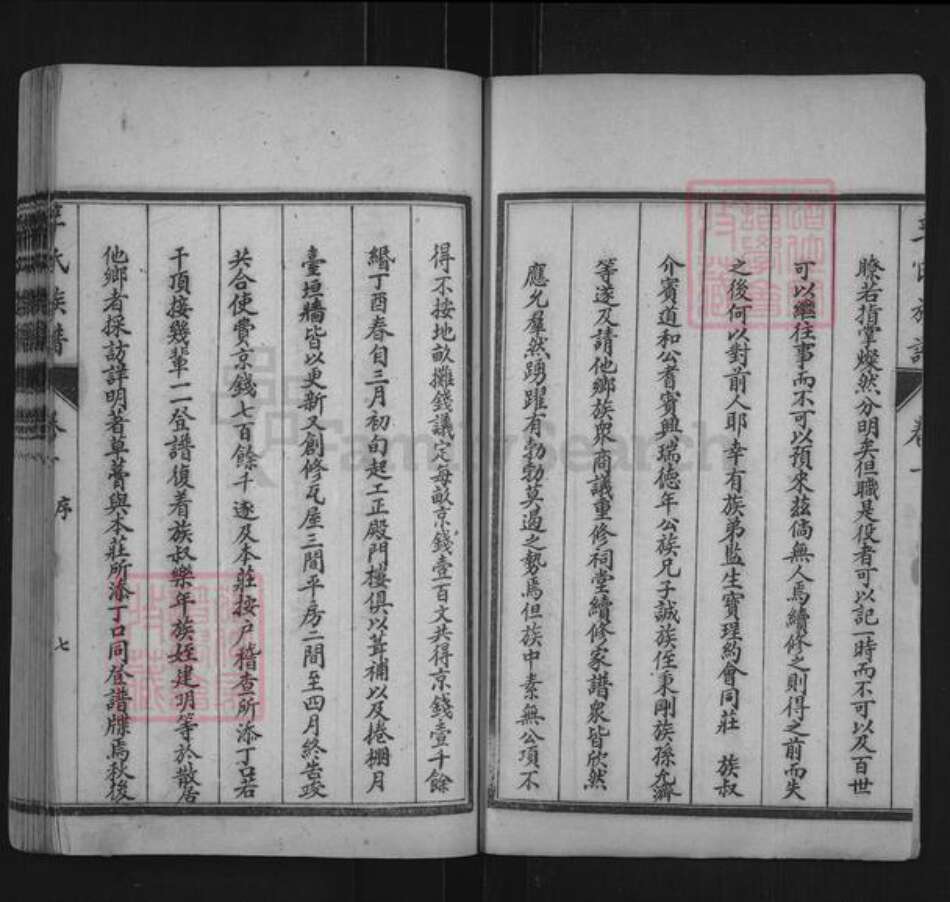 瞭若指掌燦然分明矣但職是役者可以記一時而不可以及百世
可以繼往事而不可以預來茲倘無人焉續修之則得之前而失
之後何以對前人耶幸有族弟監生寶珵約會同莊 族叔
介賓道和公耆賓興瑞德年公族兄子誠族侄秉剛族孫允濟
等遂及請他鄉族衆商議重修祠堂續修家譜衆皆欣然
應允羣然踴躍有勃勃莫過之勢焉但族中素無公項不
王氏族譜 卷一 序 七
得不按地畝攤錢議定每畝京錢壹百文共得京錢壹千餘
緡丁酉春自三月初旬起工正殿門樓俱以葺補以及捲棚月
臺垣牆皆以更新又創修瓦屋三間平房二間至四月終告竣
共合使費京錢七百餘千 遂及本莊按户稽查所添丁口若
干頂接幾輩一一登譜復着族叔樂年族姪建明等於散居
他鄉者採訪詳明著草藁與本莊所添丁口同登譜牒焉秋後
FamilySearch